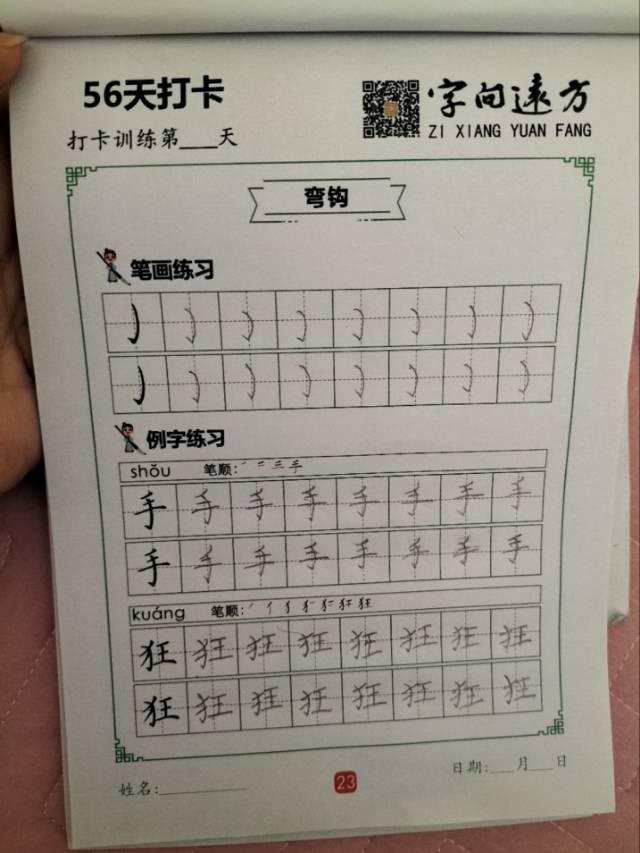 56天打卡
字向遠方
ZI XIANG YUAN FANG
打卡训练第___天
弯钩
笔画练习
例字练习
shǒu 笔顺: 一 二 三 手
手 手 手 手 手 手 手 手
手 手 手 手 手 手 手 手
kuáng 笔顺:
狂 狂 狂 狂 狂 狂 狂 狂
狂 狂 狂 狂 狂 狂 狂 狂
姓名:
23
日期:___月___日